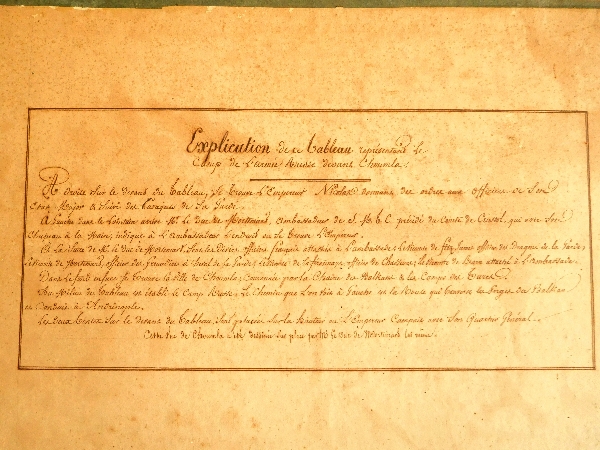 Explication de ce Tableau représentant le
Camp de l'armée Russe devant Choumla.
A droite sur le devant du Tableau, se trouve l'Empereur Nicolas donnant des ordres aux officiers de Son
Etat Major & suivi des Cosaques de Sa Garde.
A Gauche dans le lointain arrive Mr. le Duc de Mortemart, ambassadeur de S. M. T. C. précédé du Comte de qui avec son
Chapeau à la main, indique à l'ambassadeur l'endroit où se trouve l'Empereur.
A la suite de Mr. le Duc de Mortemart, sont les divers officiers français attachés à l'ambassade, le Vicomte de Fitz-James officier des Dragons de la Garde,
le Vicomte de officier des de la Garde, le Vicomte de officier de Chasseurs, le Vicomte de attaché à l'ambassade.
Dans le fond enfin se trouve la Ville de Choumla, dominée par la Chaine des Balkans & le Camp des Turcs.
Au Milieu du Tableau est établi le Camp Russe. Le Chemin que l'on voit à Gauche est la Route qui traverse les Gorges du Balkan
et conduit à Andrinople.
Les deux Tentes sur le devant du Tableau, sont placées sur la hauteur où l'Empereur Campait avec son Quartier Général.
Cette vue de Choumla a été dessinée sur place par Mr. le Duc de Mortemart lui même.